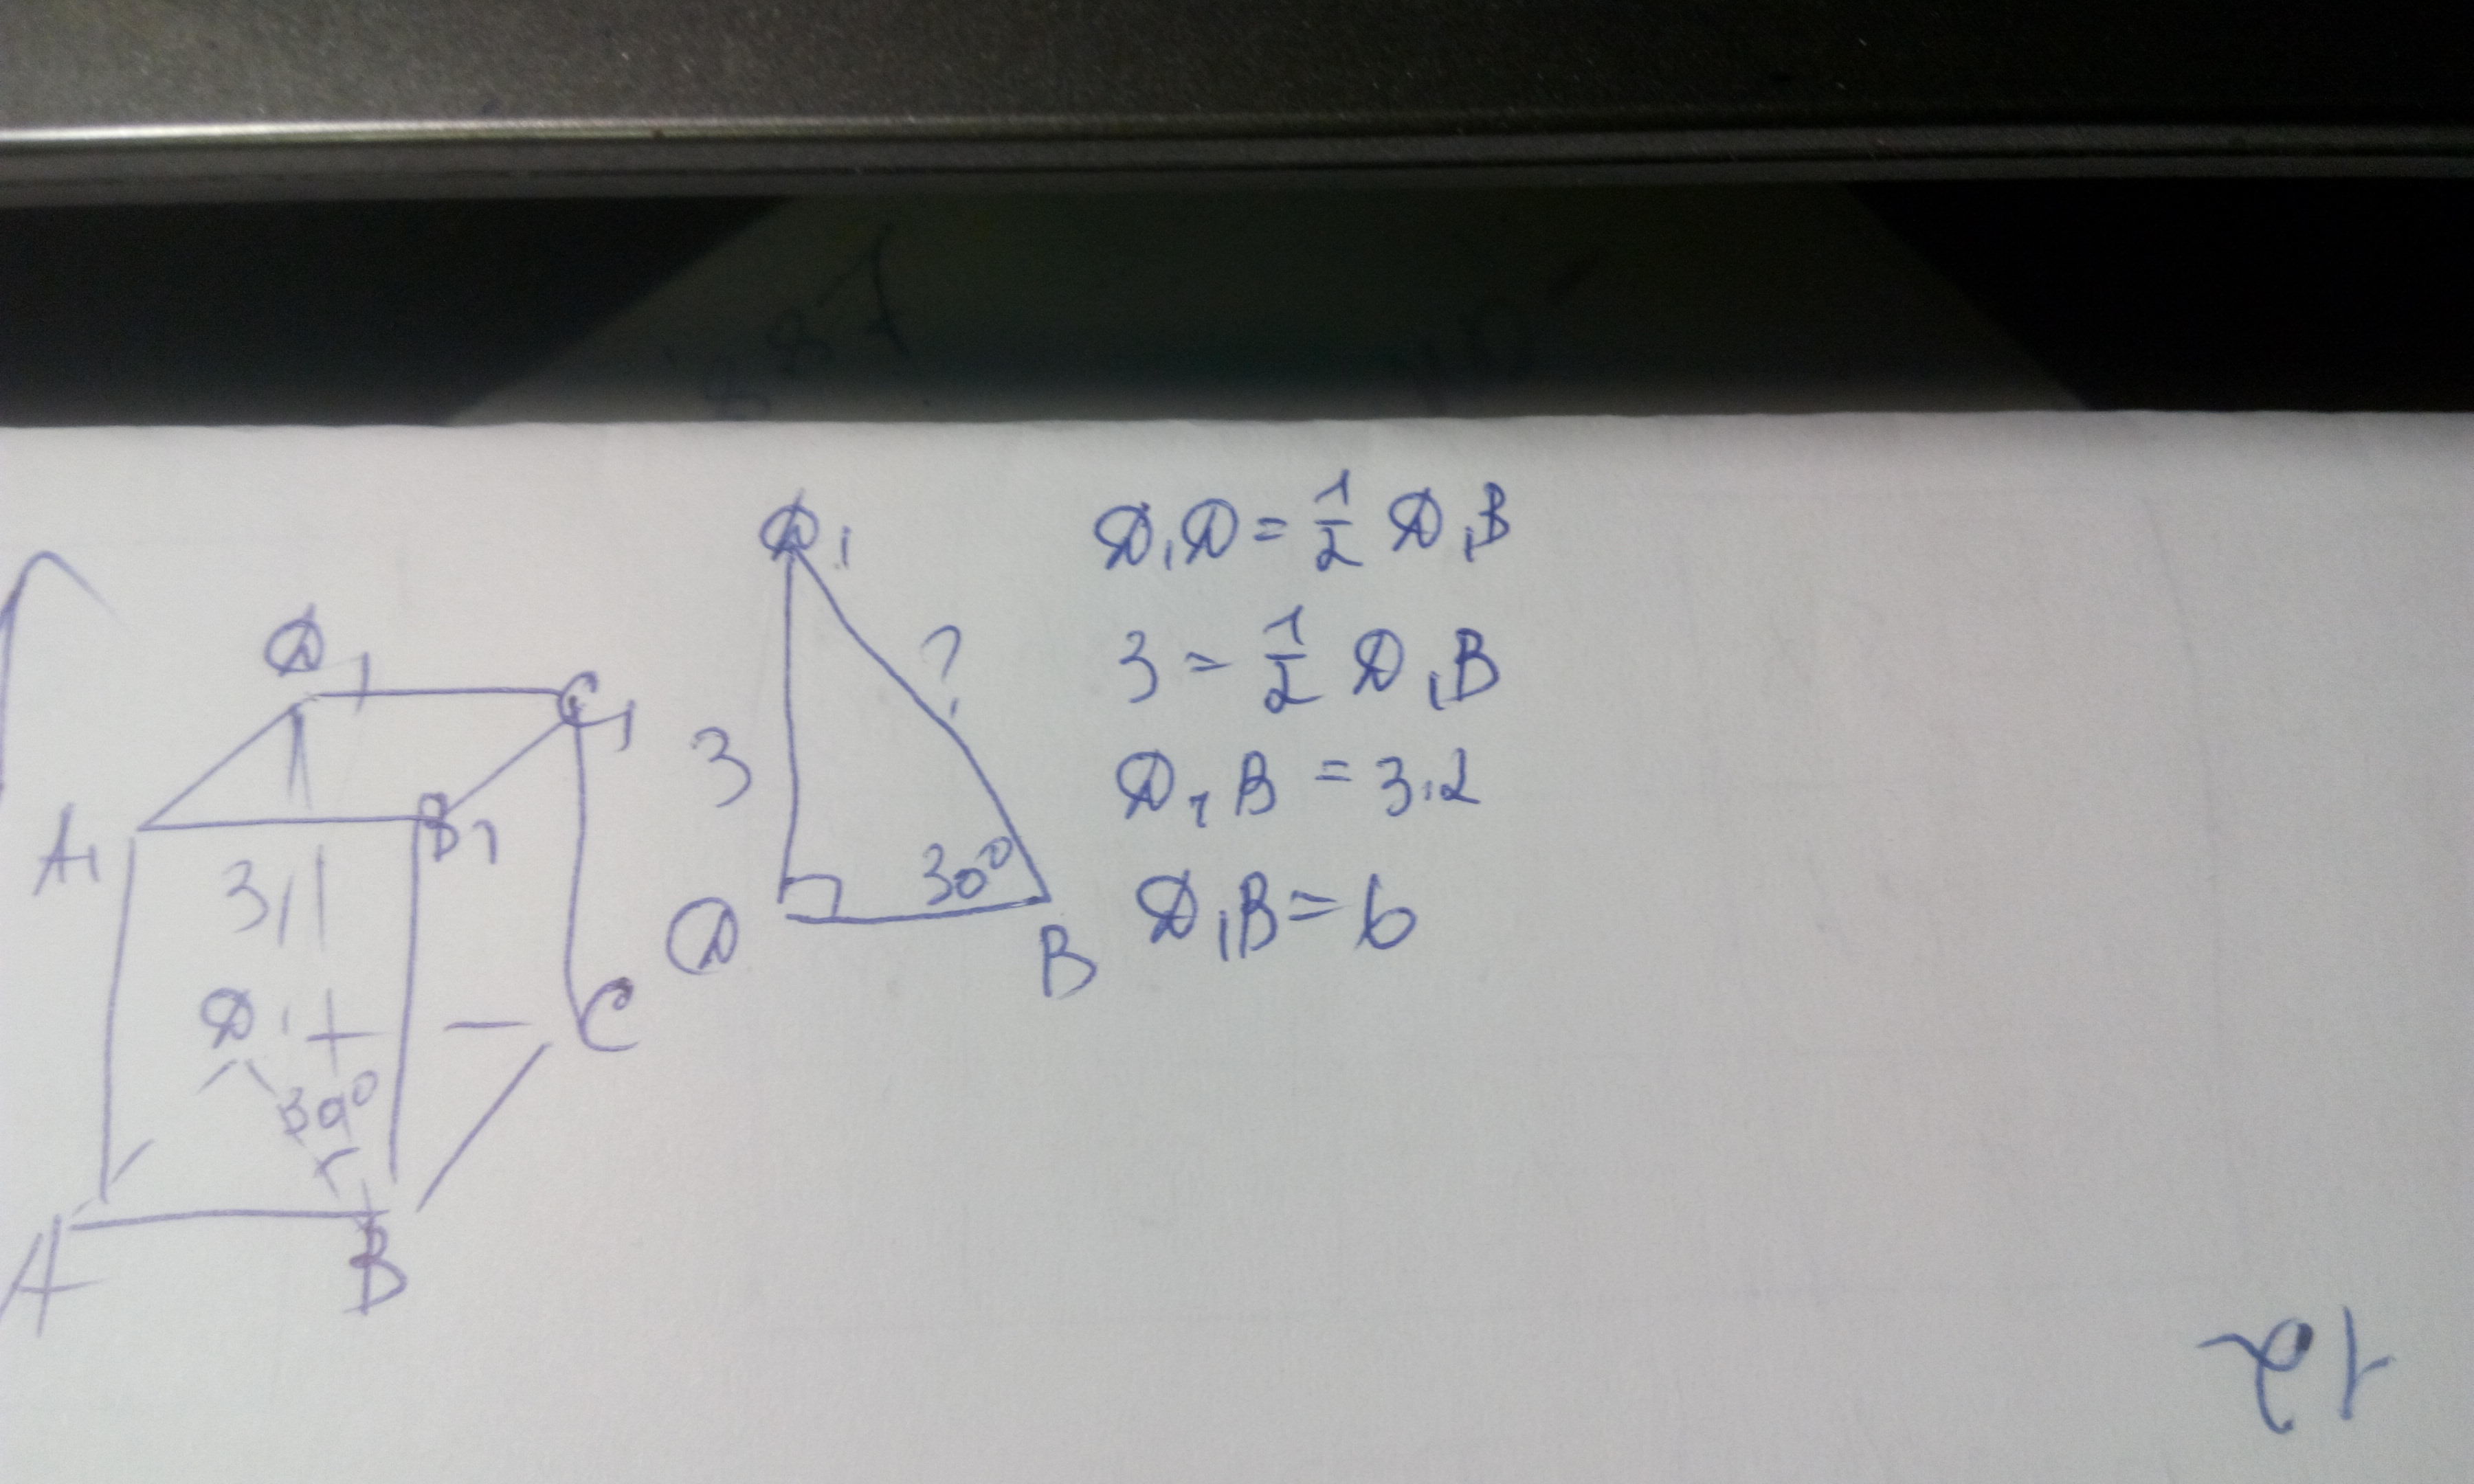 D₁
C₁
A₁
B₁
3
D
30°
C
A
B
D₁
?
3
30°
D
B
D₁D = 1/2 D₁B
3 = 1/2 D₁B
D₁B = 3·2
D₁B = 6